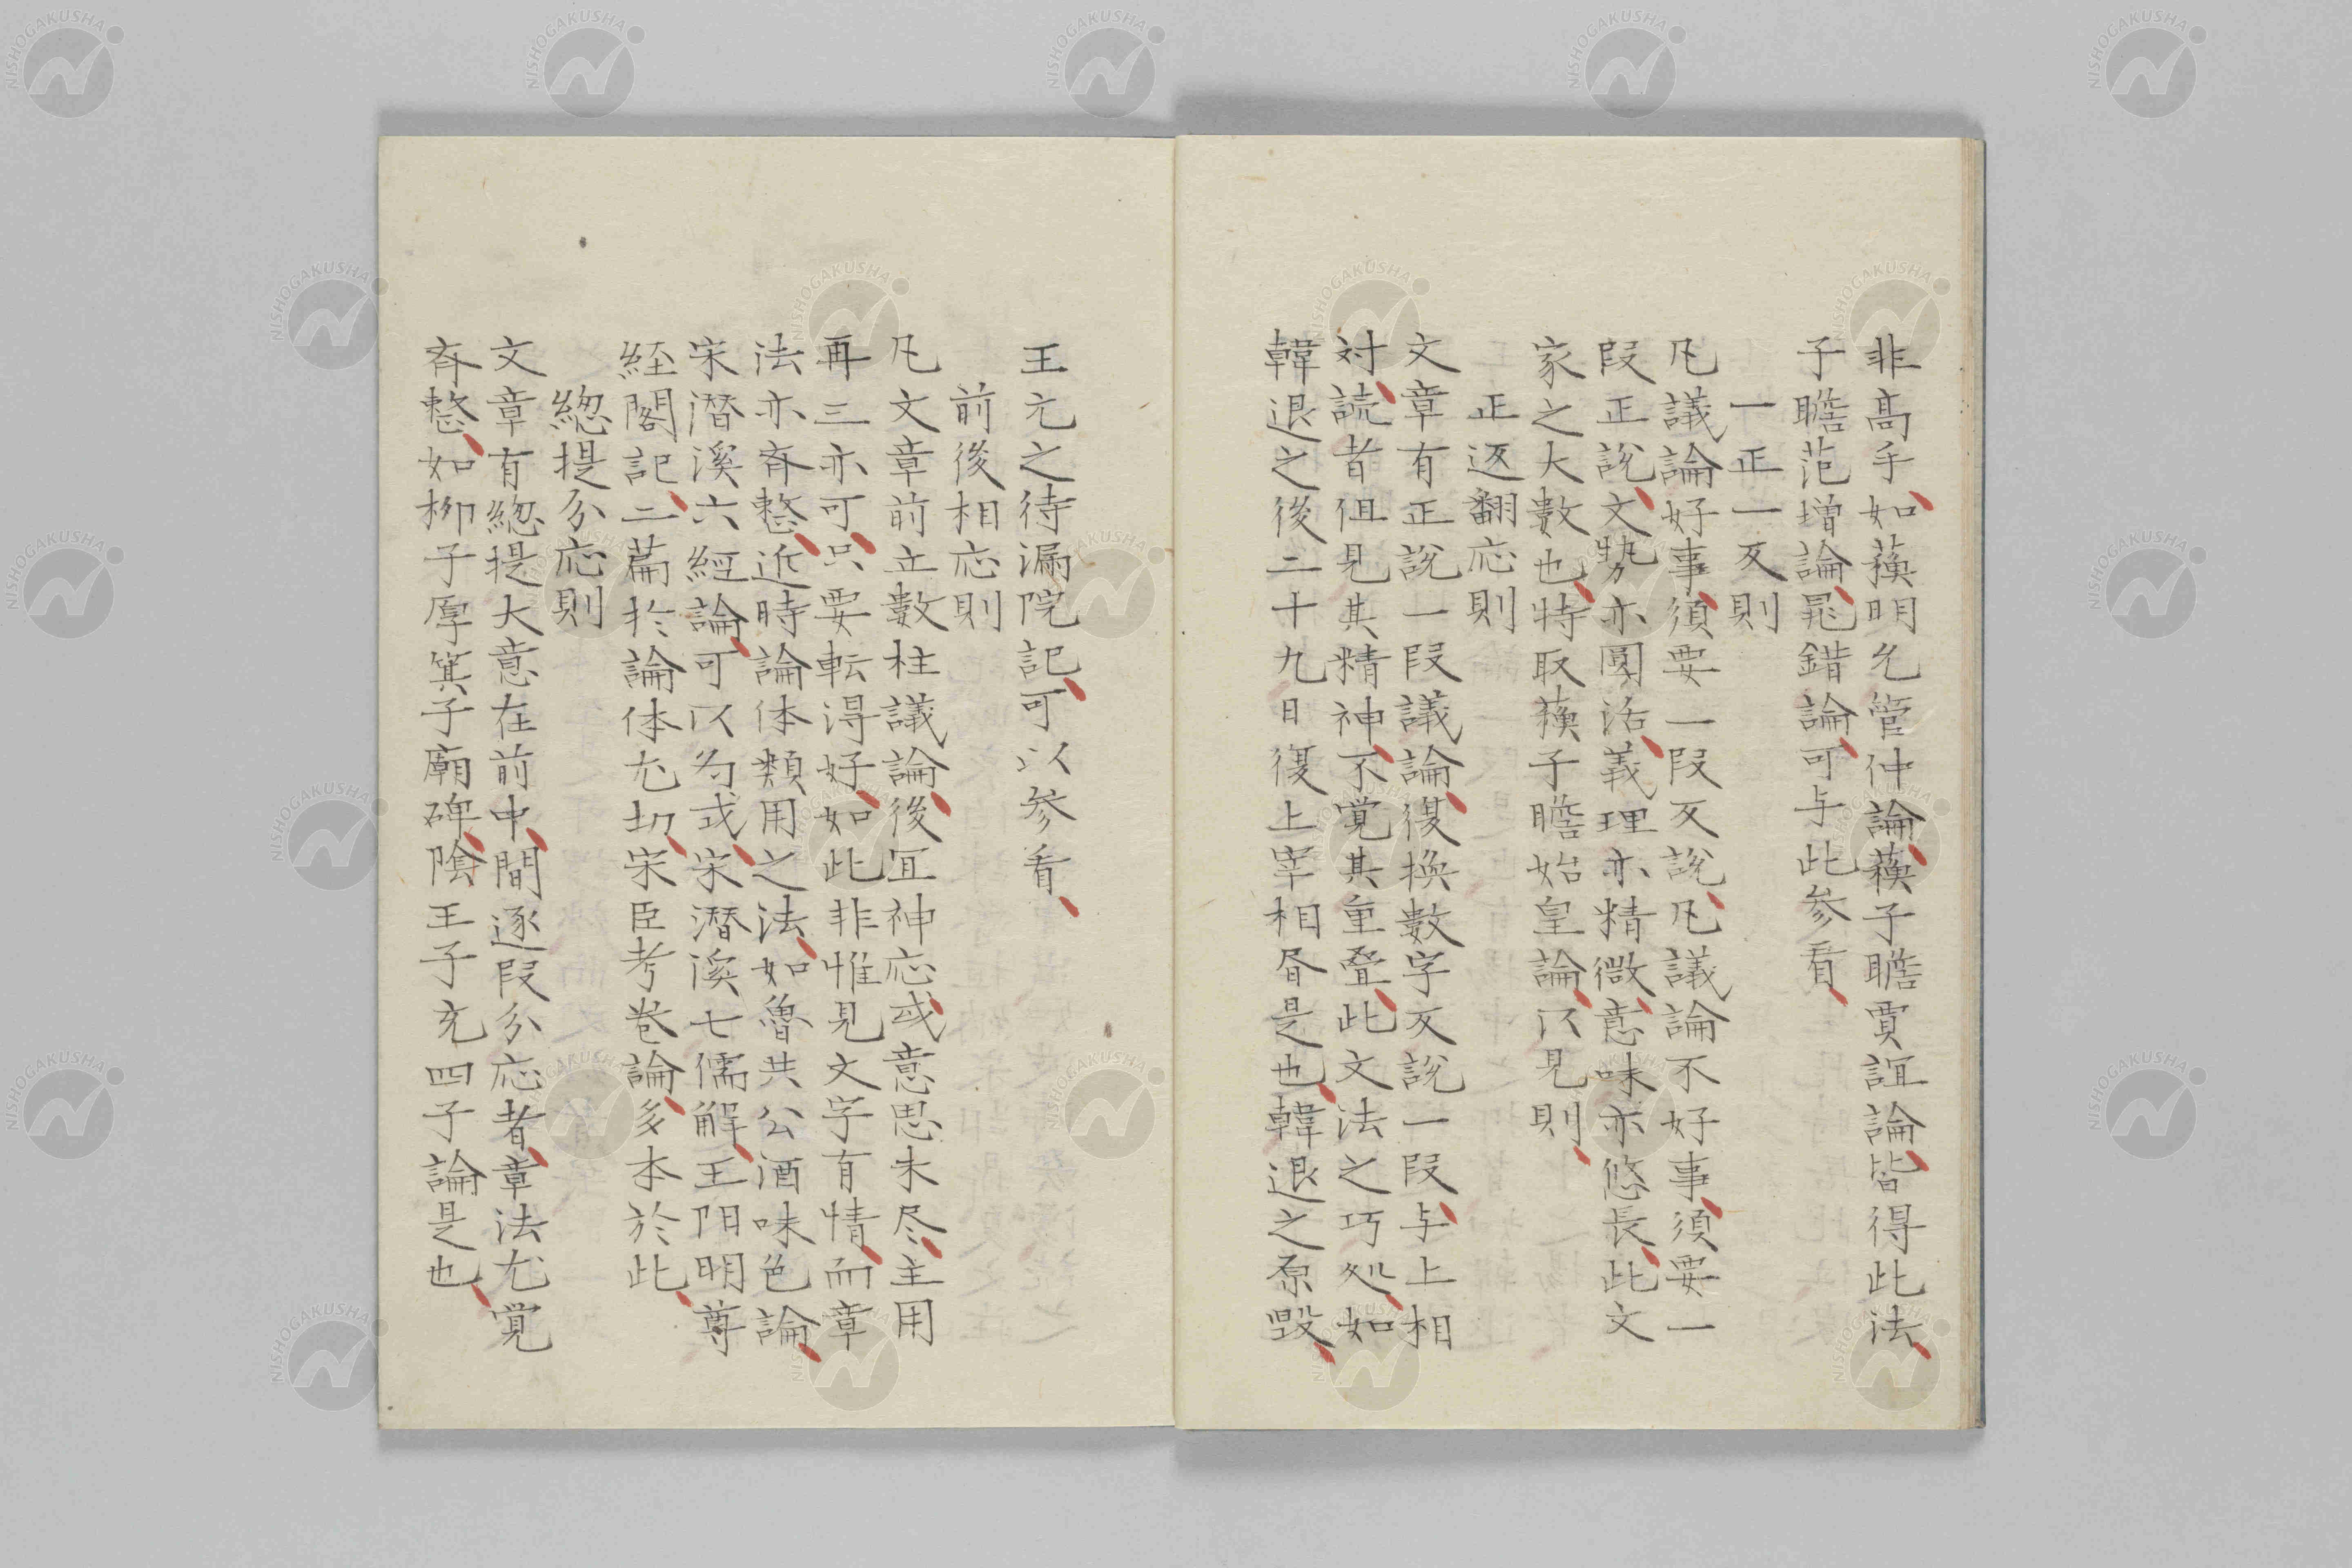 非高手、如蘓明允管仲論、蘓子瞻賈誼論、皆得此法、
子瞻范増論、晁錯論、可与此参看、
一正一反則
凡議論好事、須要一段反說、凡議論不好事、須要一
段正說、文勢亦圓活、義理亦精微、意味亦悠長、此文
家之大數也、特取蘓子瞻始皇論、以見則、
正返翻応則
文章有正說一段議論、復換數字反說一段、与上相
対、読者但見其精神、不覚其重疊、此文法之巧処、如
韓退之後二十九日復上宰相書是也、韓退之原毀、
王元之待漏院記、可以参看、
前後相応則
凡文章前立數柱議論、後冝神応、或意思未尽、主用
再三亦可、只要転得好、如此非惟見文字有情、而章
法亦斉整、近時論体類用之法、如魯共公酒味色論、
宋潜溪六經論、可以為式、宋潜溪七儒解、王阳明尊
経閣記、二篇於論体尤切、宋臣考巻論、多本於此、
緫提分応則
文章有緫提大意在前中、間逐段分応者、章法尤覚
斉整、如柳子厚箕子廟碑、隂王子充四子論是也、